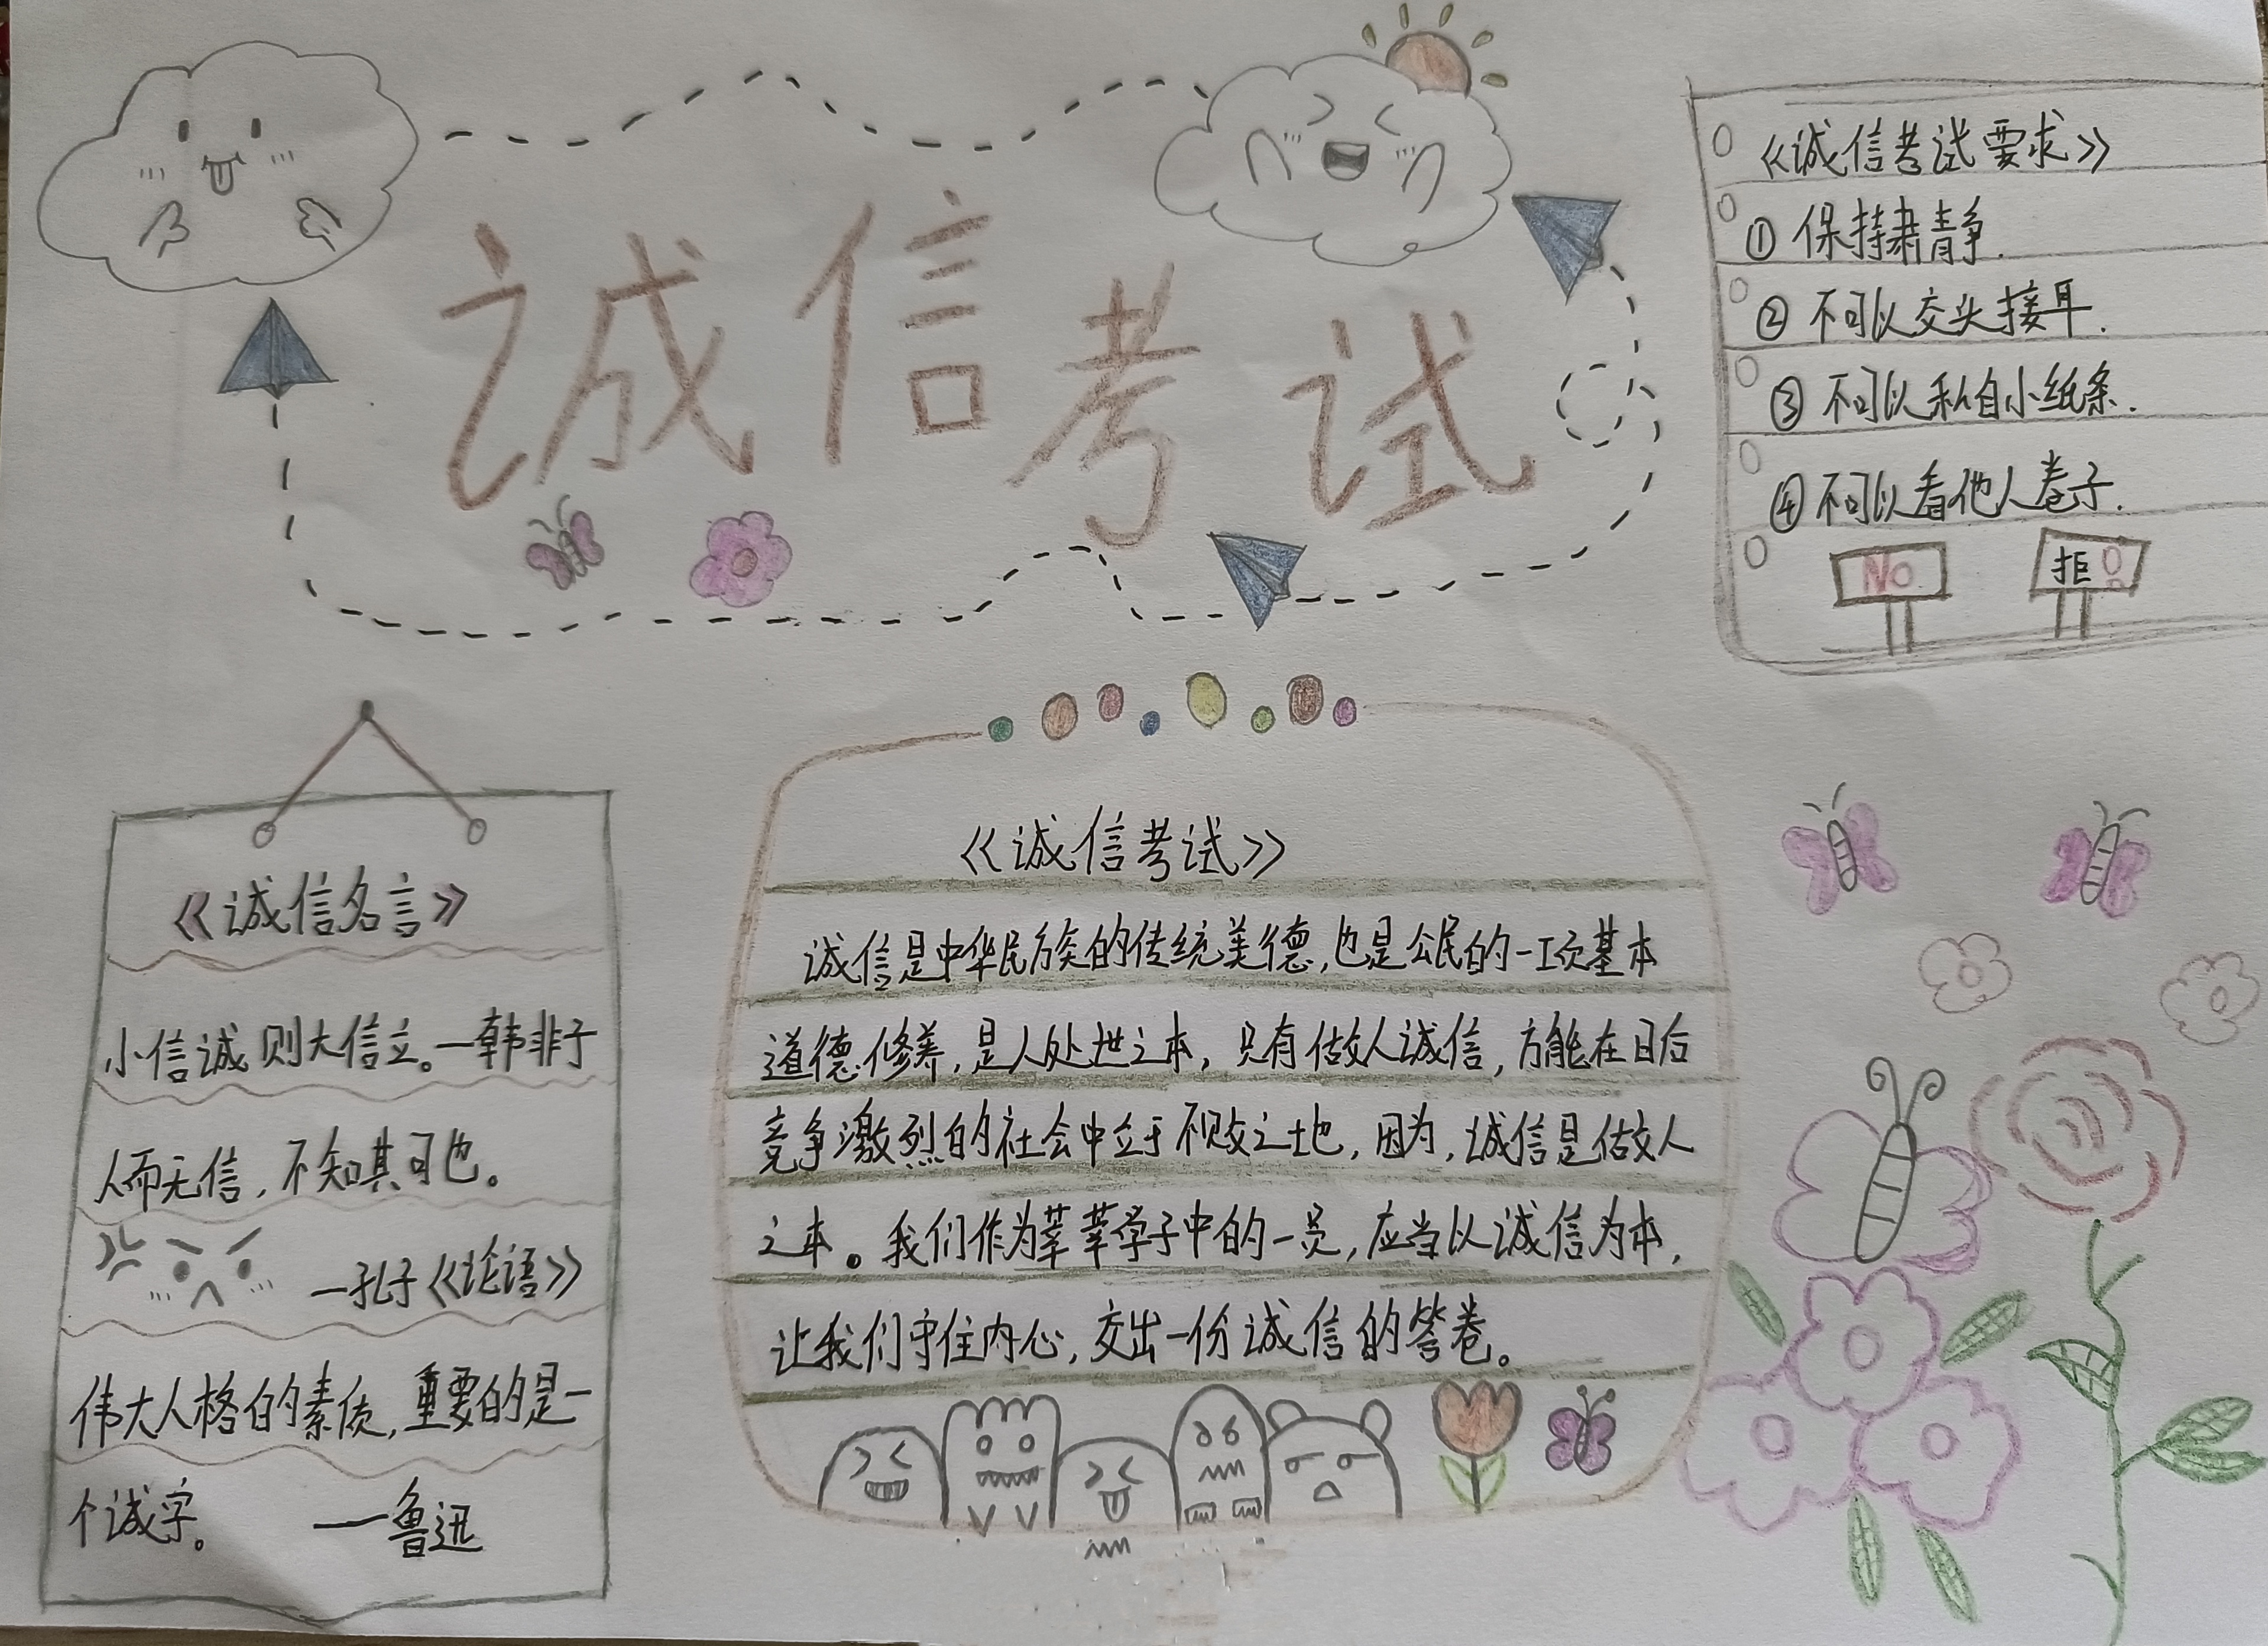 诚信考试
《诚信考试要求》
①保持肃静.
②不可以交头接耳.
③不可以私自小纸条.
④不可以看他人卷子.
No
拒
《诚信名言》
小信诚则大信立。—韩非子
人而无信，不知其可也。
—孔子《论语》
伟大人格的素质，重要的是一
个诚字。 ——鲁迅
《诚信考试》
诚信是中华民族的传统美德，也是公民的一项基本
道德修养，是人处世之本，只有做人诚信，方能在日后
竞争激烈的社会中立于不败之地，因为，诚信是做人
之本。我们作为莘莘学子中的一员，应当以诚信为本，
让我们守住内心，交出一份诚信的答卷。